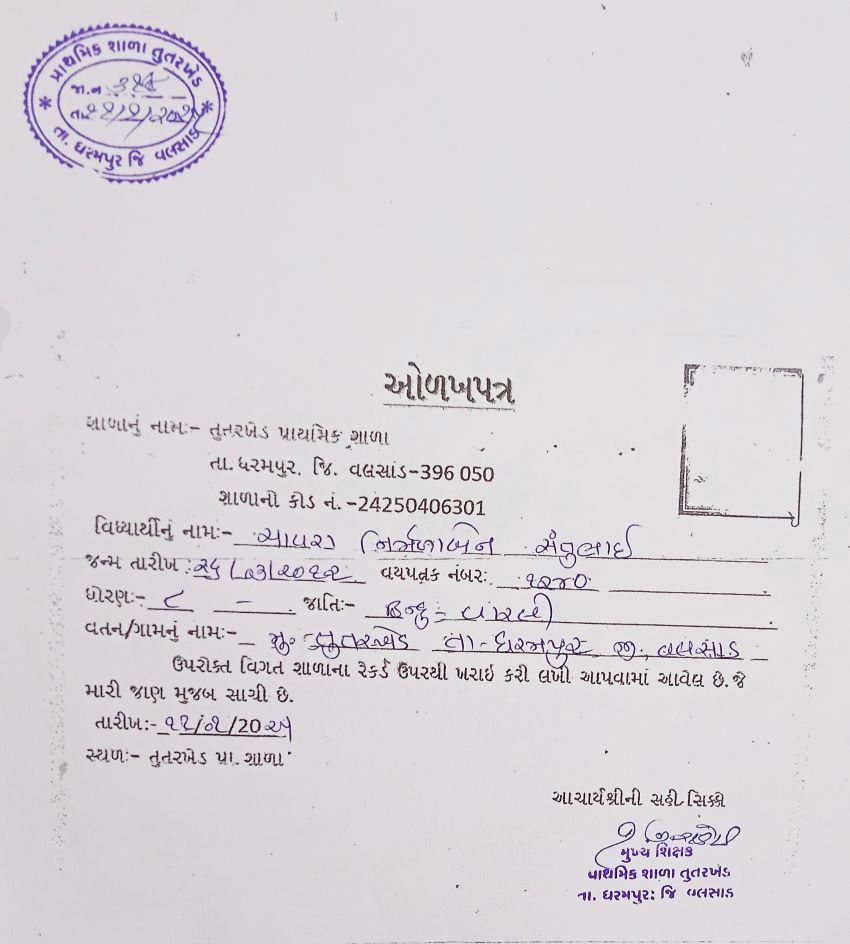 પ્રાથમિક શાળા તુતરખેડ
જા.ન
તા.
તા. ધરમપુર જિ વલસાડ
ઓળખપત્ર
શાળાનું નામઃ- તુતરખેડ પ્રાથમિક શાળા
તા. ધરમપુર. જિ. વલસાડ-396 050
શાળાનો કોડ નં. -24250406301
વિધ્યાર્થીનું નામઃ- સાપરા નિર્મળાબેન
જન્મ તારીખ : ૨૬/૦૩/૨૦૧૨ વયપત્રક નંબરઃ ૧૨૪૦
ધોરણઃ- ૮ - જાતિઃ- હિન્દુ-વારલી
વતન/ગામનું નામઃ- મુ. તુતરખેડ તા-ધરમપુર જી. વલસાડ
ઉપરોક્ત વિગત શાળાના રેકર્ડ ઉપરથી ખરાઇ કરી લખી આપવામાં આવેલ છે.જે
મારી જાણ મુજબ સાચી છે.
તારીખઃ-
સ્થળઃ- તુતરખેડ પ્રા. શાળા
આચાર્યશ્રીની સહી સિક્કો
મુખ્ય શિક્ષક
પ્રાથમિક શાળા તુતરખેડ
તા. ધરમપુર: જિ વલસાડ